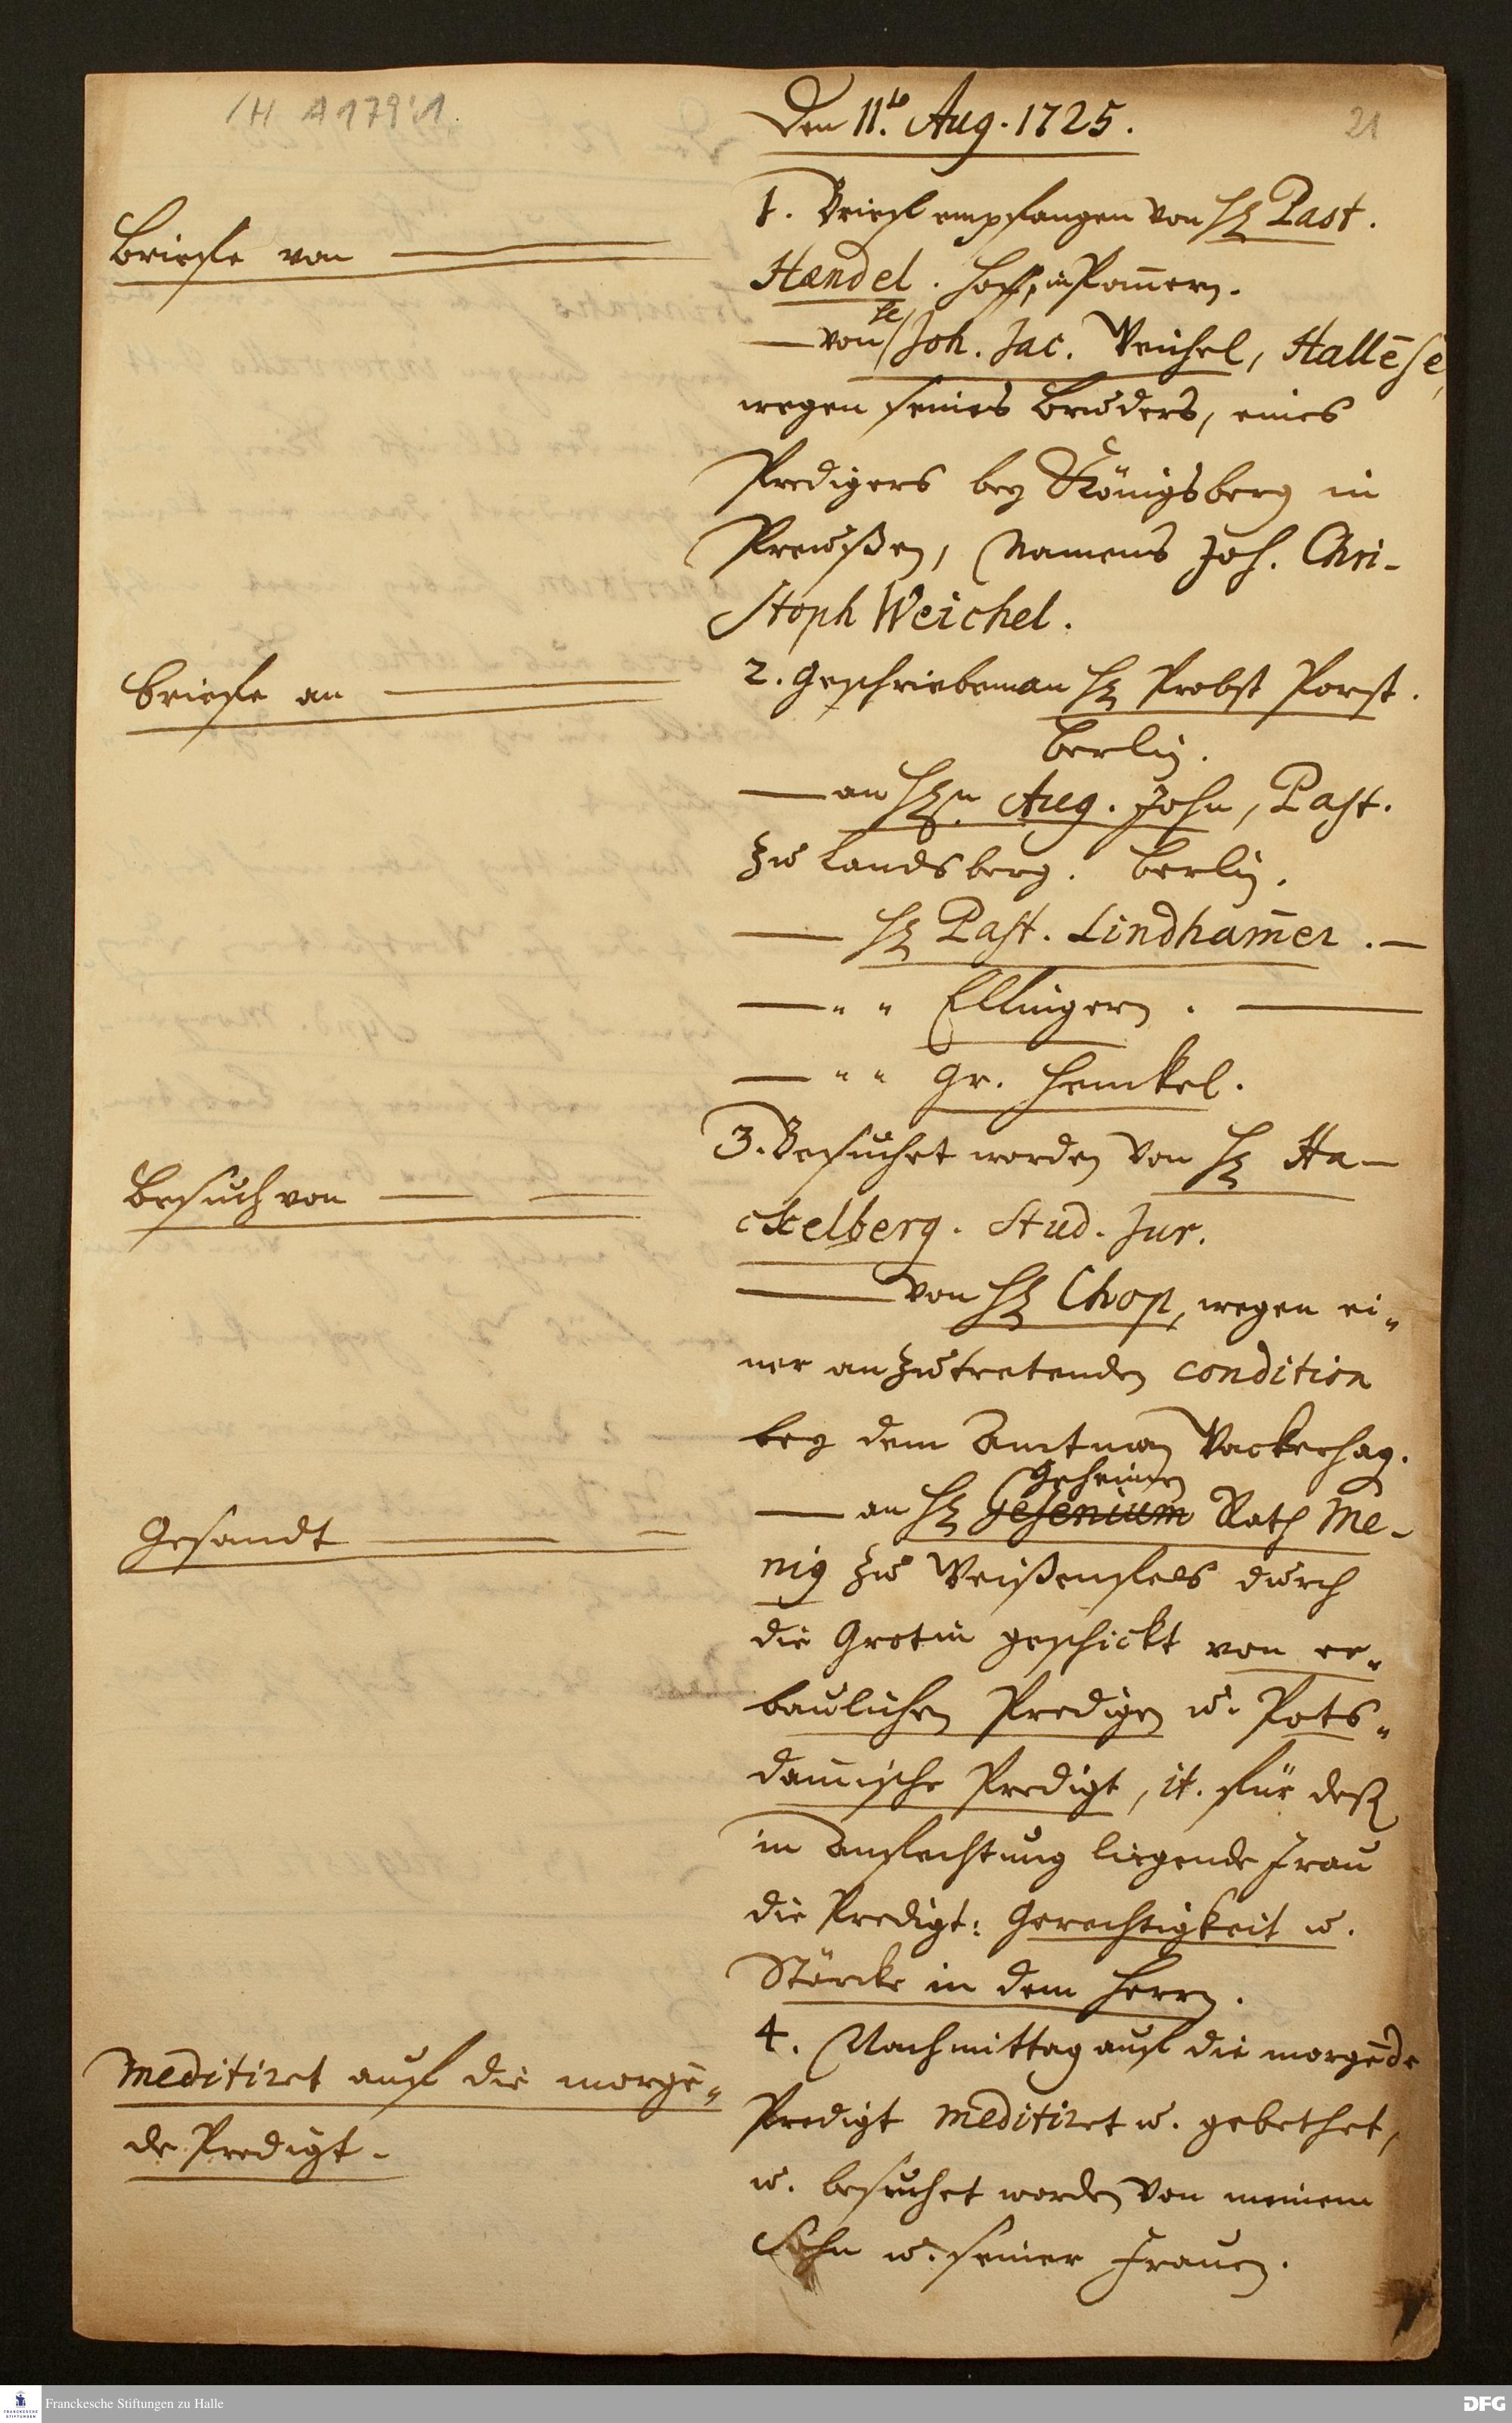 /H A 179:1
Den 11.t. Aug. 1725.
21
Briefe von
1. Briefe empfangen von H. Past.
Hændel. Hoff, in Pom̄ern.
— von Joh. Jac. Weichel, Hallēse,
wegen seines Bruders, eines
Predigers bey Königsberg in
Preußen, Namens Joh. Chri-
stoph Weichel.
Briefe an
2. Geschrieben an H. Probst Porst.
Berlin.
— an H.n Aug. John, Past.
zu Landsberg. Berlin.
— H. Past. Lindham̄er. —
— " " Ellingern. —
— " " Gr. Henckel.
Besuch von
3. Besuchet worden von H. Ha-
ckelberg. Stud. Jur.
— von H. Chop, wegen ei-
ner anzutretenden condition
bey dem Amtman Vackerhag.
Gesandt
Geheimen
— an H. Gesenium Rath Me-
nig zu Weißenfels durch
die Grotin geschickt von er-
baulichen Predigen u. Pots-
damische Predigt, it. für deß
in Anfechtung liegende Frau
die Predigt: Gerechtigkeit u.
Stärcke in dem Herrn.
Meditiret auf die morgē-
de Predigt.
4. Nachmittag auf die morgēde
Predigt meditiret u. gebethet,
u. besuchet worden von meinem
Sohn u. seiner Frauen.
Franckesche Stiftungen zu Halle
DFG